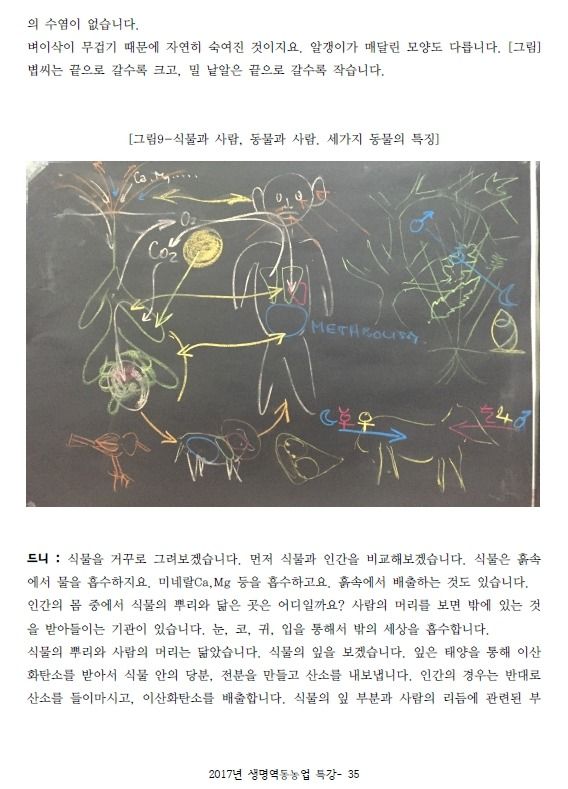 의 수염이 없습니다.
벼이삭이 무겁기 때문에 자연히 숙여진 것이지요. 알갱이가 매달린 모양도 다릅니다. [그림]
볍씨는 끝으로 갈수록 크고, 밀 낱알은 끝으로 갈수록 작습니다.
[그림9-식물과 사람, 동물과 사람. 세가지 동물의 특징]
Ca, Mg.....
O₂
CO₂
METABOLISM
드니 : 식물을 거꾸로 그려보겠습니다. 먼저 식물과 인간을 비교해보겠습니다. 식물은 흙속
에서 물을 흡수하지요. 미네랄Ca,Mg 등을 흡수하고요. 흙속에서 배출하는 것도 있습니다.
인간의 몸 중에서 식물의 뿌리와 닮은 곳은 어디일까요? 사람의 머리를 보면 밖에 있는 것
을 받아들이는 기관이 있습니다. 눈, 코, 귀, 입을 통해서 밖의 세상을 흡수합니다.
식물의 뿌리와 사람의 머리는 닮았습니다. 식물의 잎을 보겠습니다. 잎은 태양을 통해 이산
화탄소를 받아서 식물 안의 당분, 전분을 만들고 산소를 내보냅니다. 인간의 경우는 반대로
산소를 들이마시고, 이산화탄소를 배출합니다. 식물의 잎 부분과 사람의 리듬에 관련된 부
2017년 생명역동농업 특강- 35